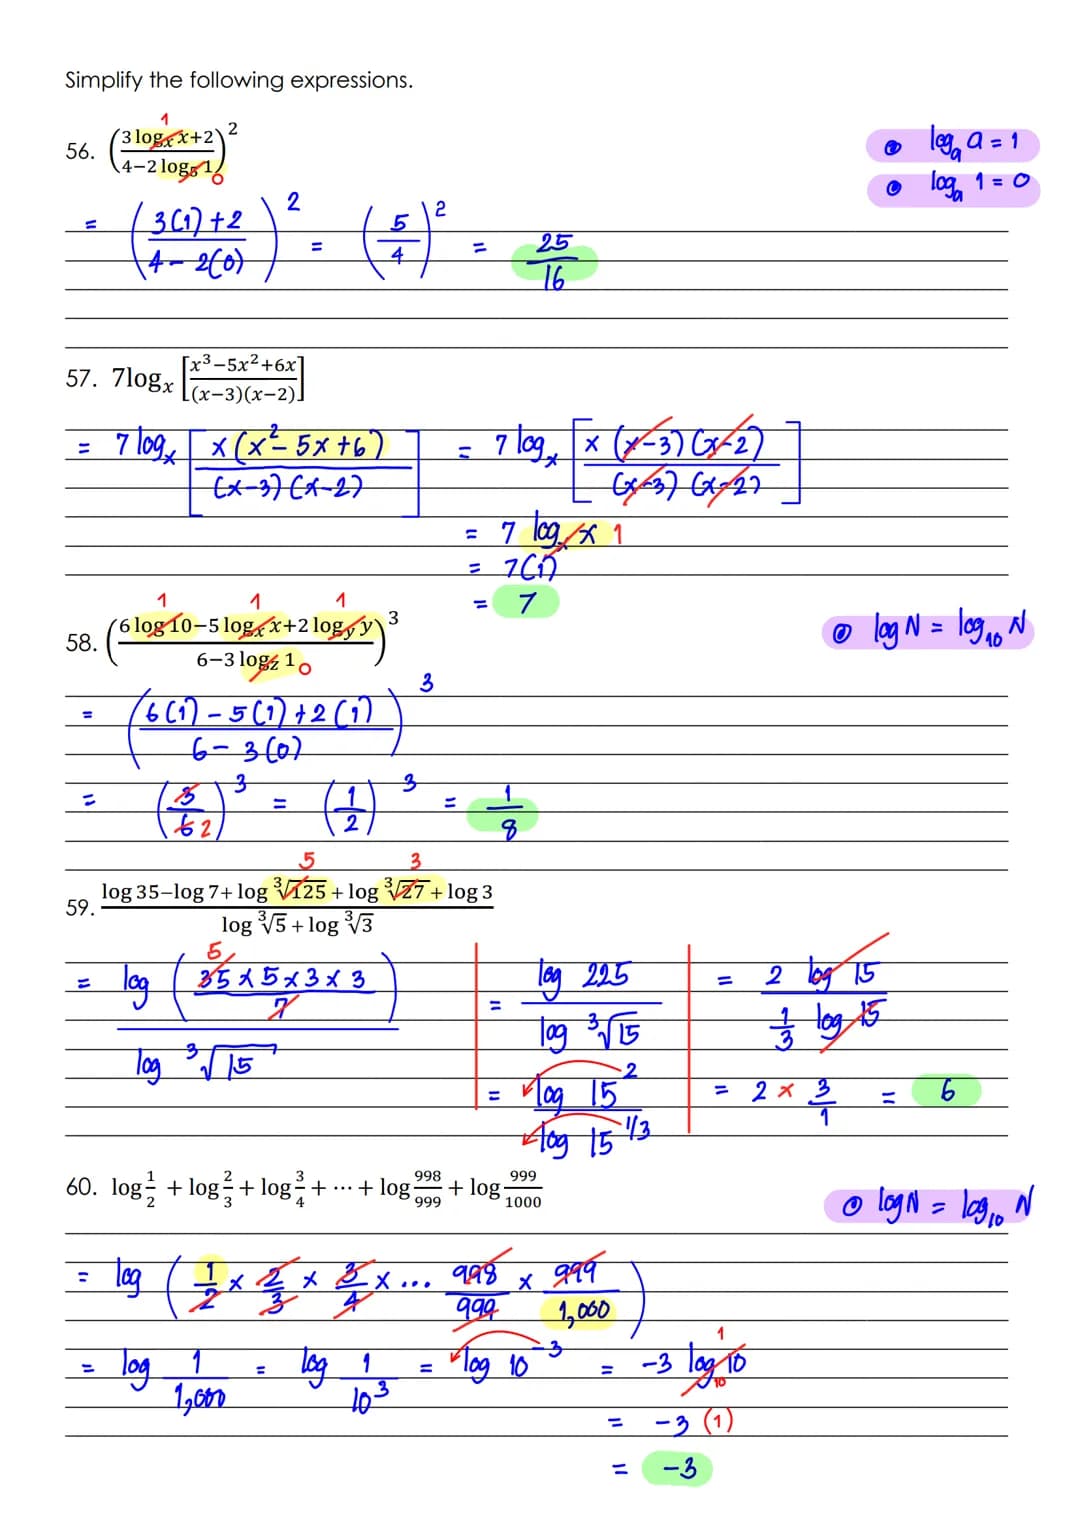 Simplify the following expressions.
56. (3 logₓ x+2 / 4−2 log₅ 1)² 1 0
• logₐ a = 1
• logₐ 1 = 0
= (3(1)+2 / 4−2(0))² = (5/4)² = 25/16
57. 7logₓ [x³−5x²+6x / (x−3)(x−2)]
= 7 logₓ [x(x²−5x+6) / (x−3)(x−2)] = 7 logₓ [x(x−3)(x−2) / (x−3)(x−2)]
= 7 logₓ x 1
= 7(1)
= 7
58. (6 log 10−5 logₓ x+2 log_y y / 6−3 log_z 1)³ 1 1 1 0
• log N = log₁₀ N
= (6(1)−5(1)+2(1) / 6−3(0))³
= (3/6 2)³ = (1/2)³ = 1/8
59. log 35−log 7+ log ∛125 + log ∛27 + log 3 / log ∛5 + log ∛3 5 3
= log (35×5×3×3 / 7) / log ∛15 5
= log 225 / log ∛15
= log 15² / log 15^1/3
= 2 log 15 / 1/3 log 15
= 2 × 3/1 = 6
60. log 1/2 + log 2/3 + log 3/4 + ⋯ + log 998/999 + log 999/1000
• log N = log₁₀ N
= log (1/2 × 2/3 × 3/4 × ... 998/999 × 999/1,000)
= log 1/1,000 = log 1/10³ = log 10⁻³ = −3 log₁₀ 10 1
= −3 (1)
= −3